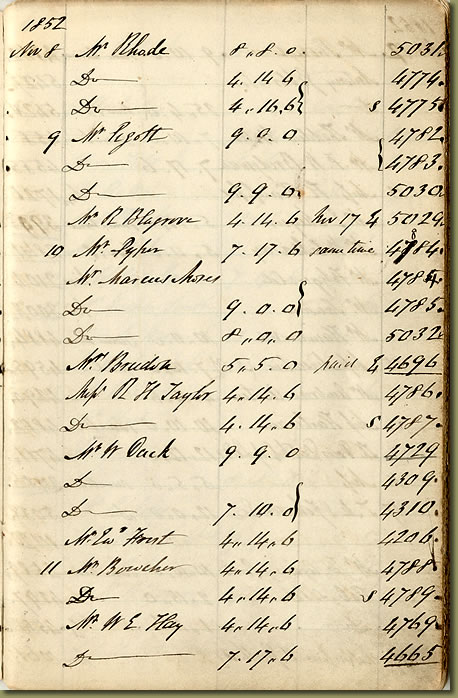 1852
Nov 8 Mr Rhode 8 . 8 . 0 5031
Do 4 . 14 6 4774
Do 4 . 16 . 6 s 4775
9 Mr Pigott 9 . 0 . 0 4782
Do 4783
Do 9 . 9 . 0 5030
Mr R Blagrove 4 . 14 . 6 Nov 17 5029
10 Mr Pyper 7 . 17 . 6 same time 4784
Mr Marcus Moses 4784
Do 9 . 0 . 0 4785
Do 8 . 0 . 0 5032
5 . 5 . 0 paid 4696
Miss R H Taylor 4 . 14 . 6 4786
Do 4 . 14 . 6 s 4787
Mr W 9 . 9 . 0 4729
D 4309
Do 7 . 10 . 0 4310
Mr Edwd Frost 4 . 14 . 6 4206
11 Mr Bowcher 4 . 14 . 6 4788
Do 4 . 14 . 6 s 4789
Mr W E Hay 4 . 14 . 6 4769
Do 7 . 17 . 6 4665